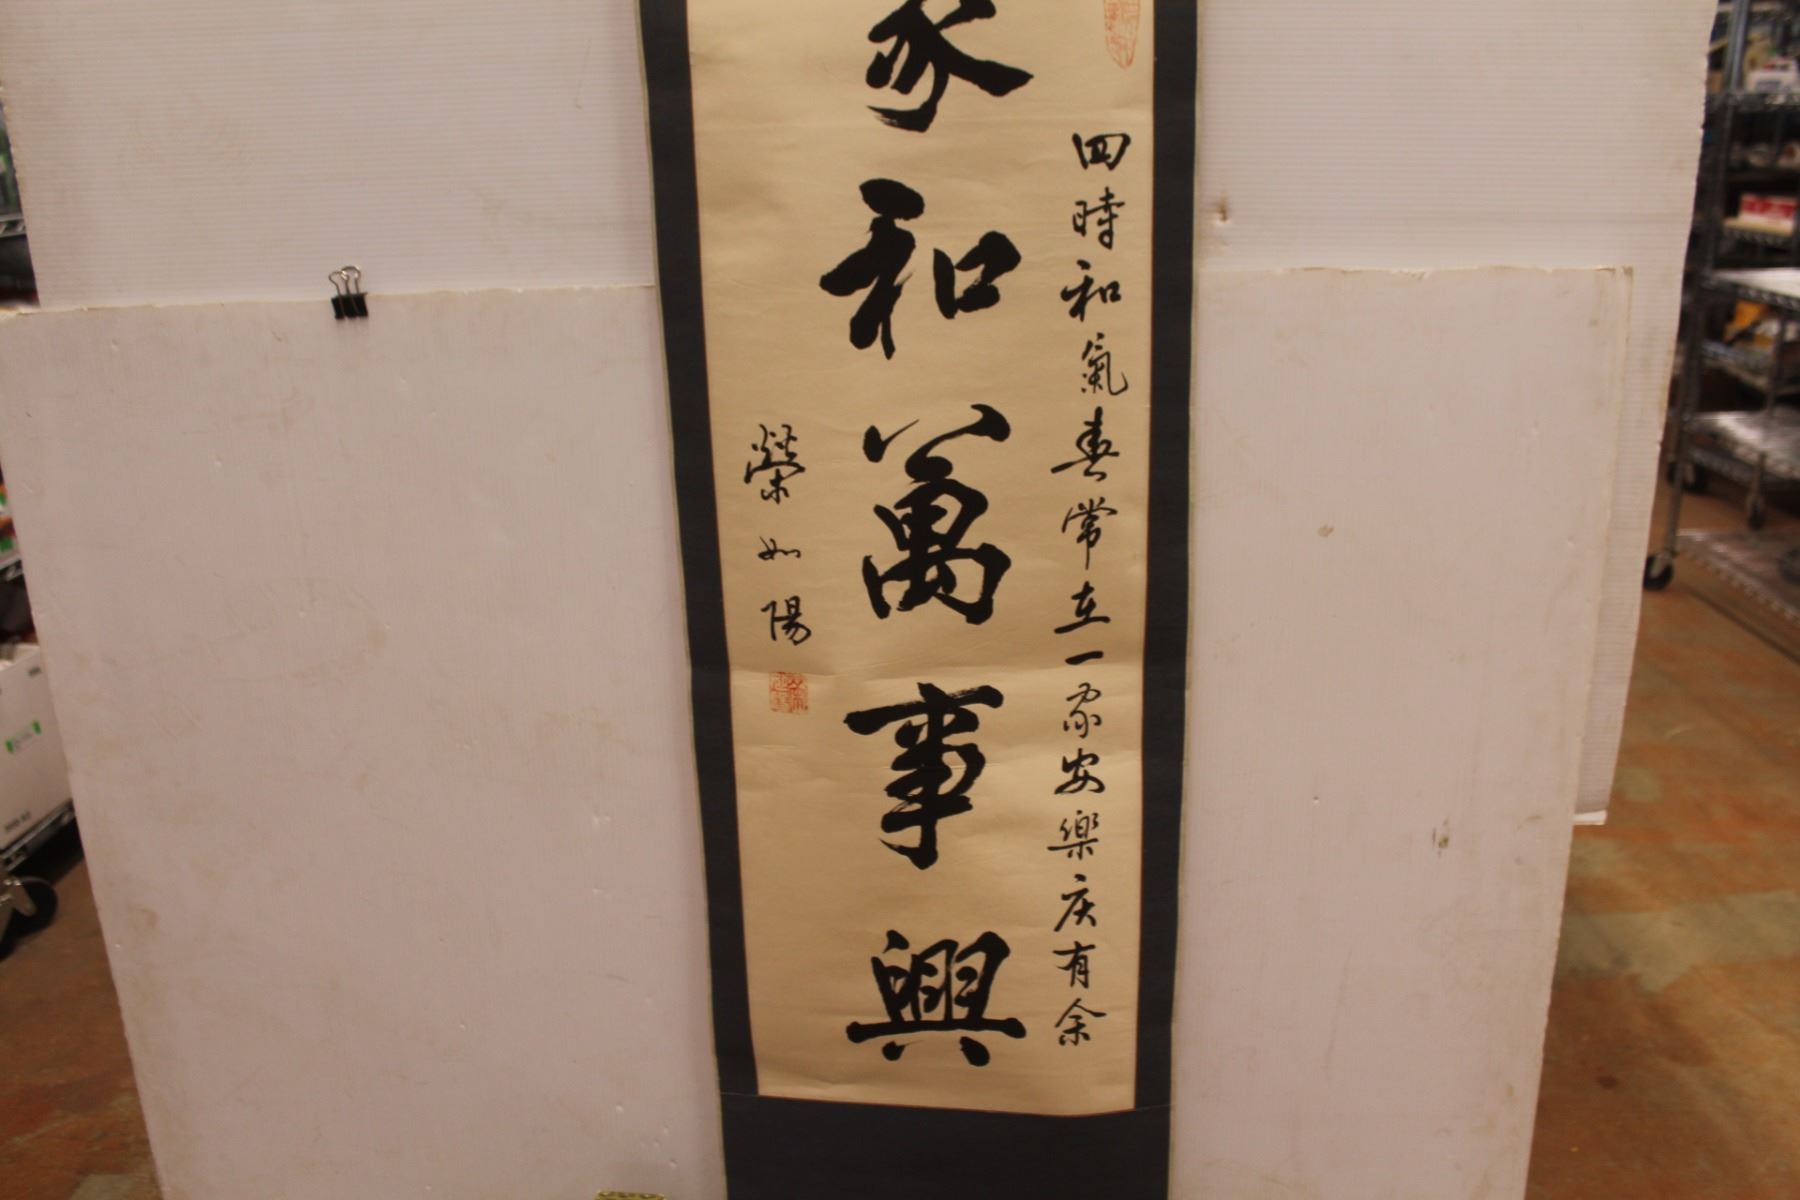 四時和氣春常在一家安樂庆有余
家和萬事興
榮如陽